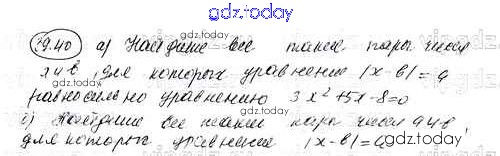 gdz.today
39.40 а) Найдите все такие пары чисел
а и в, для которых уравнение |x-в|=а
равносильно уравнению 3x²+5x-8=0
б) Найдите все такие пары чисел а и в,
для которых уравнение |x-в|=а
gdz.today